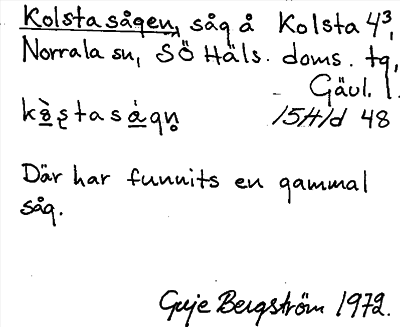 Kolstasågen, såg å Kolsta 4³,
Norrala sn, SÖ Häls. doms. tg,
Gävl. l.
kò̱ʂtasá̱gn̥ 15H1d 48
Där har funnits en gammal
såg.
Guje Bergström 1972.